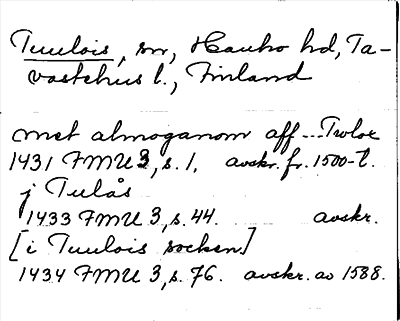 Tuulois, sn, Hauho hd, Ta-
vastehus l., Finland
met almoganom aff ... Twlox
1431 FMU 3, s. 1, avskr. fr. 1500-t.
j Tulås
1433 FMU 3, s. 44. avskr.
[i Tuulois socken]
1434 FMU 3, s. 76. avskr. av 1588.